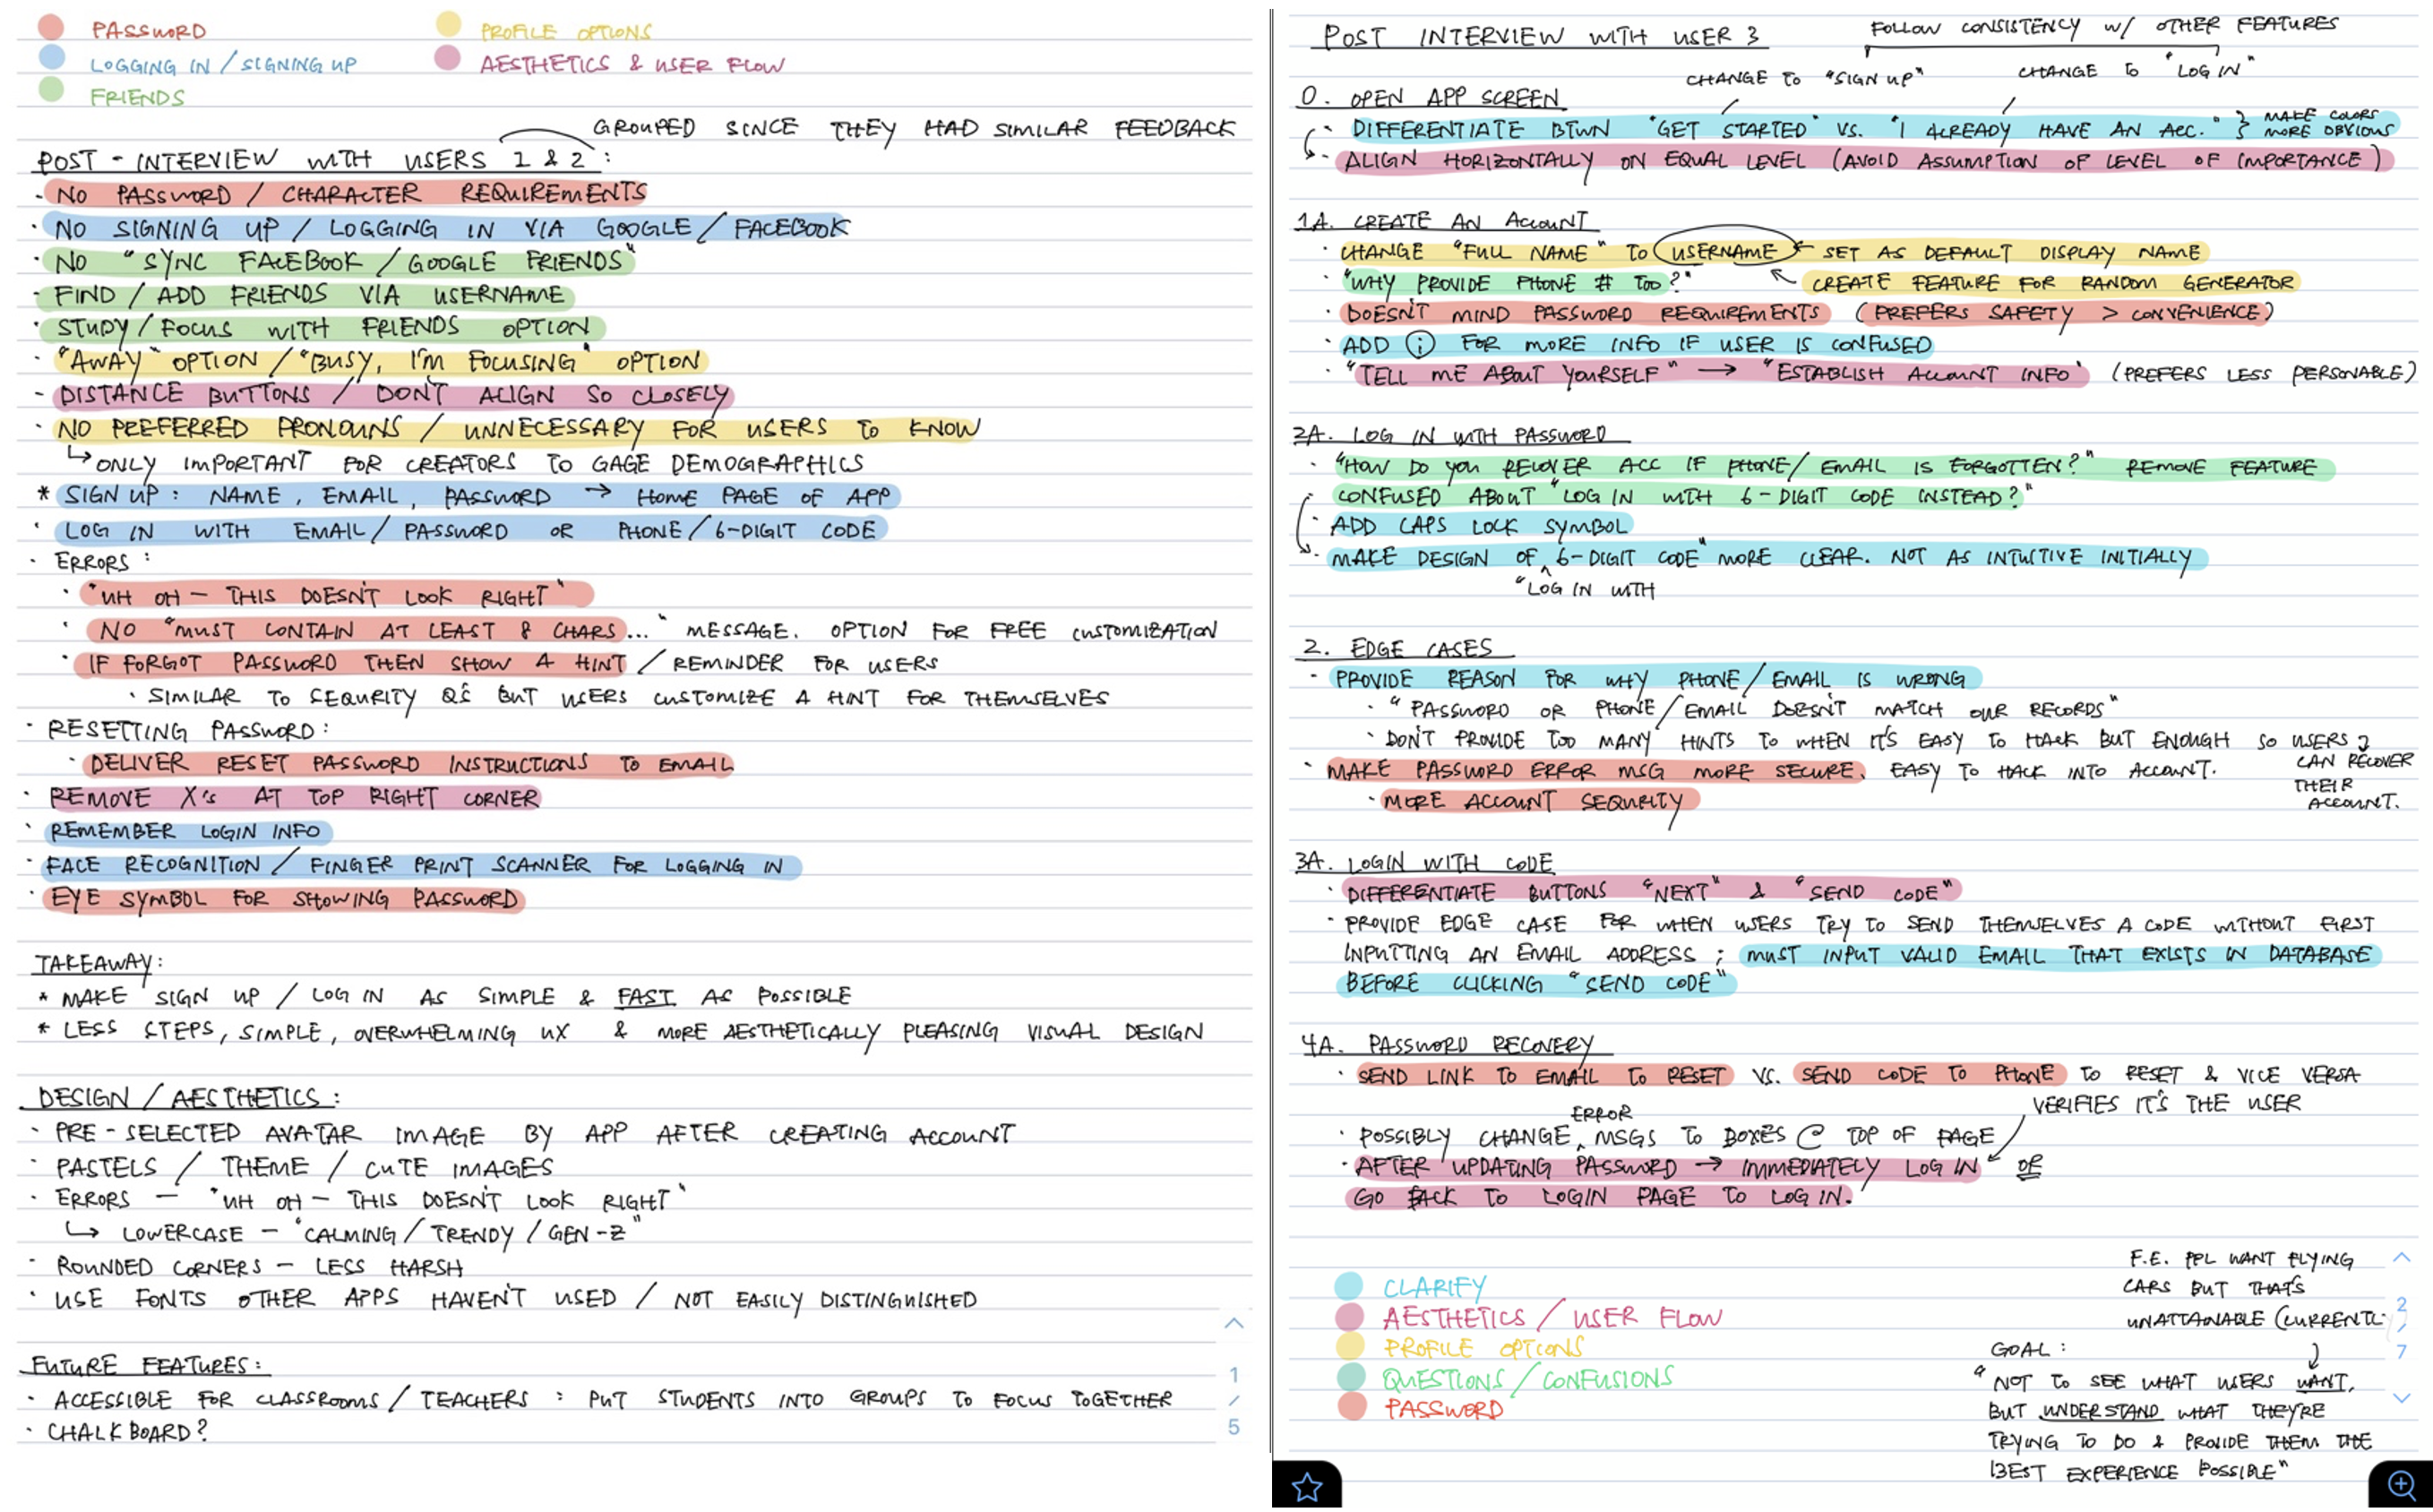 PASSWORD
LOGGING IN / SIGNING UP
FRIENDS
PROFILE OPTIONS
AESTHETICS & USER FLOW
GROUPED SINCE THEY HAD SIMILAR FEEDBACK
POST - INTERVIEW WITH USERS 1 & 2 :
- NO PASSWORD / CHARACTER REQUIREMENTS
· NO SIGNING UP / LOGGING IN VIA GOOGLE / FACEBOOK
· NO "SYNC FACEBOOK / GOOGLE FRIENDS"
- FIND / ADD FRIENDS VIA USERNAME
· STUDY / FOCUS WITH FRIENDS OPTION
· "AWAY" OPTION / "BUSY, I'M FOCUSING" OPTION
- DISTANCE BUTTONS / DON'T ALIGN SO CLOSELY
· NO PREFERRED PRONOUNS / UNNECESSARY FOR USERS TO KNOW
↳ ONLY IMPORTANT FOR CREATORS TO GAGE DEMOGRAPHICS
* SIGN UP : NAME, EMAIL, PASSWORD → HOME PAGE OF APP
· LOG IN WITH EMAIL / PASSWORD OR PHONE / 6-DIGIT CODE
· ERRORS :
· "UH OH — THIS DOESN'T LOOK RIGHT"
· NO "MUST CONTAIN AT LEAST 8 CHARS..." MESSAGE. OPTION FOR FREE CUSTOMIZATION
· IF FORGOT PASSWORD THEN SHOW A HINT / REMINDER FOR USERS
· SIMILAR TO SEQURITY QS BUT USERS CUSTOMIZE A HINT FOR THEMSELVES
· RESETTING PASSWORD :
· DELIVER RESET PASSWORD INSTRUCTIONS TO EMAIL
- REMOVE X's AT TOP RIGHT CORNER
· REMEMBER LOGIN INFO
· FACE RECOGNITION / FINGER PRINT SCANNER FOR LOGGING IN
· EYE SYMBOL FOR SHOWING PASSWORD
TAKEAWAY :
* MAKE SIGN UP / LOG IN AS SIMPLE & FAST AS POSSIBLE
* LESS STEPS, SIMPLE, OVERWHELMING UX & MORE AESTHETICALLY PLEASING VISUAL DESIGN
DESIGN / AESTHETICS :
· PRE-SELECTED AVATAR IMAGE BY APP AFTER CREATING ACCOUNT
· PASTELS / THEME / CUTE IMAGES
· ERRORS — "UH OH — THIS DOESN'T LOOK RIGHT"
↳ LOWERCASE — "CALMING / TRENDY / GEN-Z"
· ROUNDED CORNERS — LESS HARSH
· USE FONTS OTHER APPS HAVEN'T USED / NOT EASILY DISTINGUISHED
FUTURE FEATURES :
· ACCESSIBLE FOR CLASSROOMS / TEACHERS : PUT STUDENTS INTO GROUPS TO FOCUS TOGETHER
· CHALKBOARD?
1
/
5
POST INTERVIEW WITH USER 3
FOLLOW CONSISTENCY W/ OTHER FEATURES
CHANGE TO "SIGN UP"
CHANGE TO "LOG IN"
0. OPEN APP SCREEN
· DIFFERENTIATE BTWN "GET STARTED" VS. "I ALREADY HAVE AN ACC." } MAKE COLORS MORE OBVIOUS
· ALIGN HORIZONTALLY ON EQUAL LEVEL (AVOID ASSUMPTION OF LEVEL OF IMPORTANCE)
1A. CREATE AN ACCOUNT
· CHANGE "FULL NAME" TO USERNAME ← SET AS DEFAULT DISPLAY NAME
· "WHY PROVIDE PHONE # TOO?" CREATE FEATURE FOR RANDOM GENERATOR
· DOESN'T MIND PASSWORD REQUIREMENTS (PREFERS SAFETY > CONVENIENCE)
· ADD ⓘ FOR MORE INFO IF USER IS CONFUSED
· "TELL ME ABOUT YOURSELF" → "ESTABLISH ACCOUNT INFO" (PREFERS LESS PERSONABLE)
2A. LOG IN WITH PASSWORD
· "HOW DO YOU RECOVER ACC IF PHONE / EMAIL IS FORGOTTEN?" REMOVE FEATURE
· CONFUSED ABOUT "LOG IN WITH 6-DIGIT CODE INSTEAD?"
· ADD CAPS LOCK SYMBOL
· MAKE DESIGN OF ^ 6-DIGIT CODE" MORE CLEAR. NOT AS INTUITIVE INITIALLY
"LOG IN WITH
2. EDGE CASES
- PROVIDE REASON FOR WHY PHONE / EMAIL IS WRONG
· "PASSWORD OR PHONE / EMAIL DOESN'T MATCH OUR RECORDS"
· DON'T PROVIDE TOO MANY HINTS TO WHEN IT'S EASY TO HACK BUT ENOUGH SO USERS CAN RECOVER THEIR ACCOUNT.
· MAKE PASSWORD ERROR MSG MORE SECURE. EASY TO HACK INTO ACCOUNT.
· MORE ACCOUNT SEQURITY
3A. LOGIN WITH CODE
· DIFFERENTIATE BUTTONS "NEXT" & "SEND CODE"
· PROVIDE EDGE CASE FOR WHEN USERS TRY TO SEND THEMSELVES A CODE WITHOUT FIRST
INPUTTING AN EMAIL ADDRESS ; MUST INPUT VALID EMAIL THAT EXISTS IN DATABASE
BEFORE CLICKING "SEND CODE"
4A. PASSWORD RECOVERY
· SEND LINK TO EMAIL TO RESET VS. SEND CODE TO PHONE TO RESET & VICE VERSA
VERIFIES IT'S THE USER
ERROR
· POSSIBLY CHANGE ^ MSGS TO BOXES @ TOP OF PAGE
· AFTER UPDATING PASSWORD → IMMEDIATELY LOG IN OR
GO BACK TO LOGIN PAGE TO LOG IN.
CLARIFY
AESTHETICS / USER FLOW
PROFILE OPTIONS
QUESTIONS / CONFUSIONS
PASSWORD
F.E. PPL WANT FLYING
CARS BUT THAT'S
UNATTAINABLE (CURRENTL
GOAL :
"NOT TO SEE WHAT USERS WANT,
BUT UNDERSTAND WHAT THEY'RE
TRYING TO DO & PROVIDE THEM THE
BEST EXPERIENCE POSSIBLE"
2
/
7